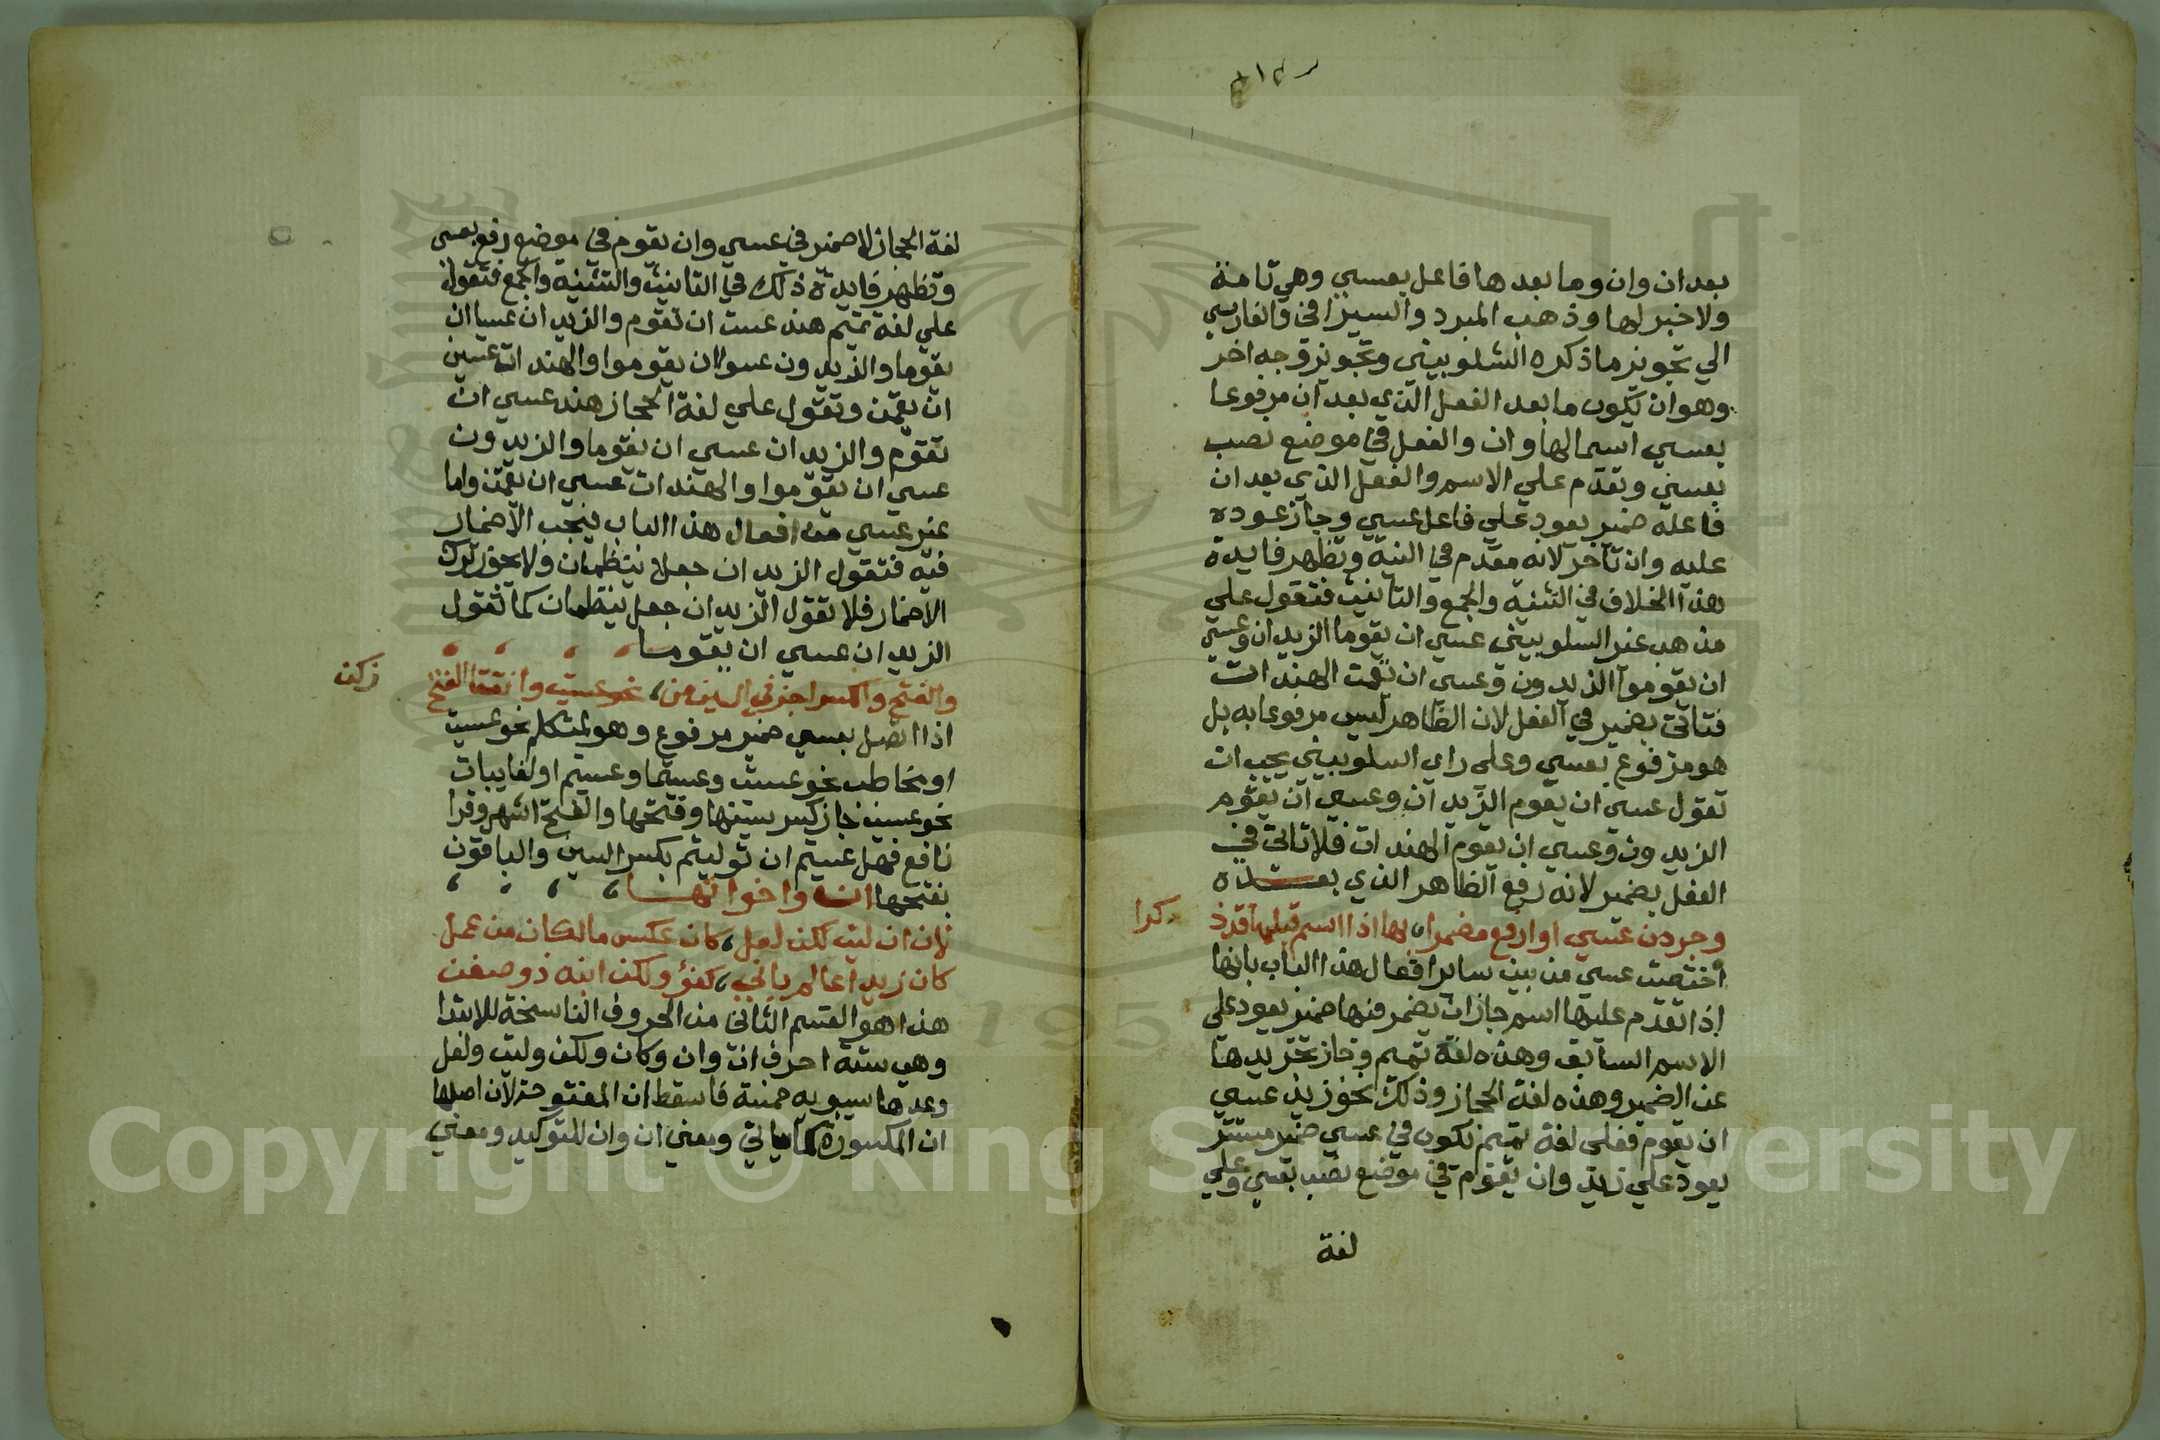 بعدان وان وما بعدها فاعل بعسي وهي تامة
ولا خبر لها وذهب المبرد والسيرافي والفارسي
الي تجويز ماذكره الشلوبيني وتجويز وجه اخر
وهوان يكون ما بعد الفعل الذي بعد ان مرفوعا
بعسي اسما لها وان والفعل في موضع نصب
بعسي وتقدم علي الاسم والفعل الذي بعد ان
فاعله ضمير يعود علي فاعل عسي وجاز عوده
عليه وان تاخر لانه مقدم في النية وتظهر فايدة
هذا الخلاف في التثنية والجمع والتانيث فتقول علي
مذهب غير السلوبيني عسي ان يقوما الزيدان وعسي
ان يقوموا الزيدون وعسي ان يقمن الهندات
فتاتي بضمير في الفعل لان الظاهر ليس مرفوعا به بل
هو مرفوع بعسي وعلي راي السلوبيني يجب ان
تقول عسي ان يقوم الزيدان وعسي ان يقوم
الزيدون وعسي ان يقوم الهندات فلا تاتي في
الفعل بضمير لانه رفع الظاهر الذي بعده
وجردن عسي او ارفع مضمرا، بها اذا اسم قبلها قد ذ
كرا
اختصت عسي من بين ساير افعال هذا الباب بانها
اذا تقدم عليها اسم جاز ان يضمر فيها ضمير يعود علي
الاسم السابق وهذه لغة تميم وجاز تجريدها
عن الضمير وهذه لغة الحجاز وذلك نحو زيد عسي
ان يقوم فعلي لغة تميم يكون في عسي ضمير مستتر
يعود علي زيد وان يقوم في موضع نصب بعسي وعلي
لغة
لغة الحجاز لا ضمير في عسي وان يقوم في موضع رفع بعسي
وتظهر فايدة ذلك في التانيث والتثنية والجمع فتقول
علي لغة تميم هند عست ان تقوم والزيدان عسيا ان
يقوما والزيدون عسوا ان يقوموا والهندات عسين
ان يقمن وتقول علي لغة الحجاز هند عسي ان
تقوم والزيدان عسي ان يقوما والزيدون
عسي ان يقوموا والهندات عسي ان يقمن واما
غير عسي من افعال هذا الباب فيجب الاضمار
فيه فتقول الزيدان جعلا ينظمان ولا يجوز ترك
الاضمار فلا تقول الزيدان جعل ينظمان كما تقول
الزيدان عسي ان يقوما
والفتح والكسر اجز في السين من، نحو عسيت وانتقا الفتح
زكن
اذا اتصل بعسي ضمير مرفوع وهو لمتكلم نحو عسيت
او مخاطب نحو عسيت وعسيتما وعسيتم او لغايبات
نحو عسين جاز كسر سينها وفتحها والفتح اشهر وقرا
نافع فهل عسيتم ان توليتم بكسر السين والباقون
بفتحها ان واخواتها
لان ان ليت لكن لعل، كان عكس ما لكان من عمل
كان زيدا عالم باني، كفؤ ولكن ابنه ذو ضغن
هذا هو القسم الثاني من الحروف الناسخة للابتدا
وهي ستة احرف ان وان وكان ولكن وليت ولعل
وعدها سيبويه خمسة فاسقط ان المفتوحة لان اصلها
ان المكسورة كما ياتي ومعني ان وان للتوكيد ومعني